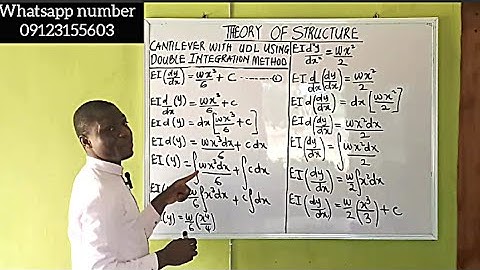 Whatsapp number
09123155603
THEORY OF STRUCTURE
CANTILEVER WITH UDL USING
DOUBLE INTEGRATION METHOD
EI(dy/dx) = wx³/6 + C ①
EI d/dx (y) = wx³/6 + C
EI d(y) = dx[wx³/6 + C]
EI d(y) = wx³dx/6 + C dx
EI (y) = ∫wx³dx/6 + ∫C dx
w/6 ∫x³dx + C∫dx
(y) = w/6 (x⁴/4)
EI d²y/dx² = wx²/2
EI d/dx (dy/dx) = wx²/2
EI d(dy/dx) = dx[wx²/2]
EI d(dy/dx) = wx²dx/2
EI (dy/dx) = ∫wx²dx/2
EI (dy/dx) = w/2 ∫x²dx
EI (dy/dx) = w/2 (x³/3) + C